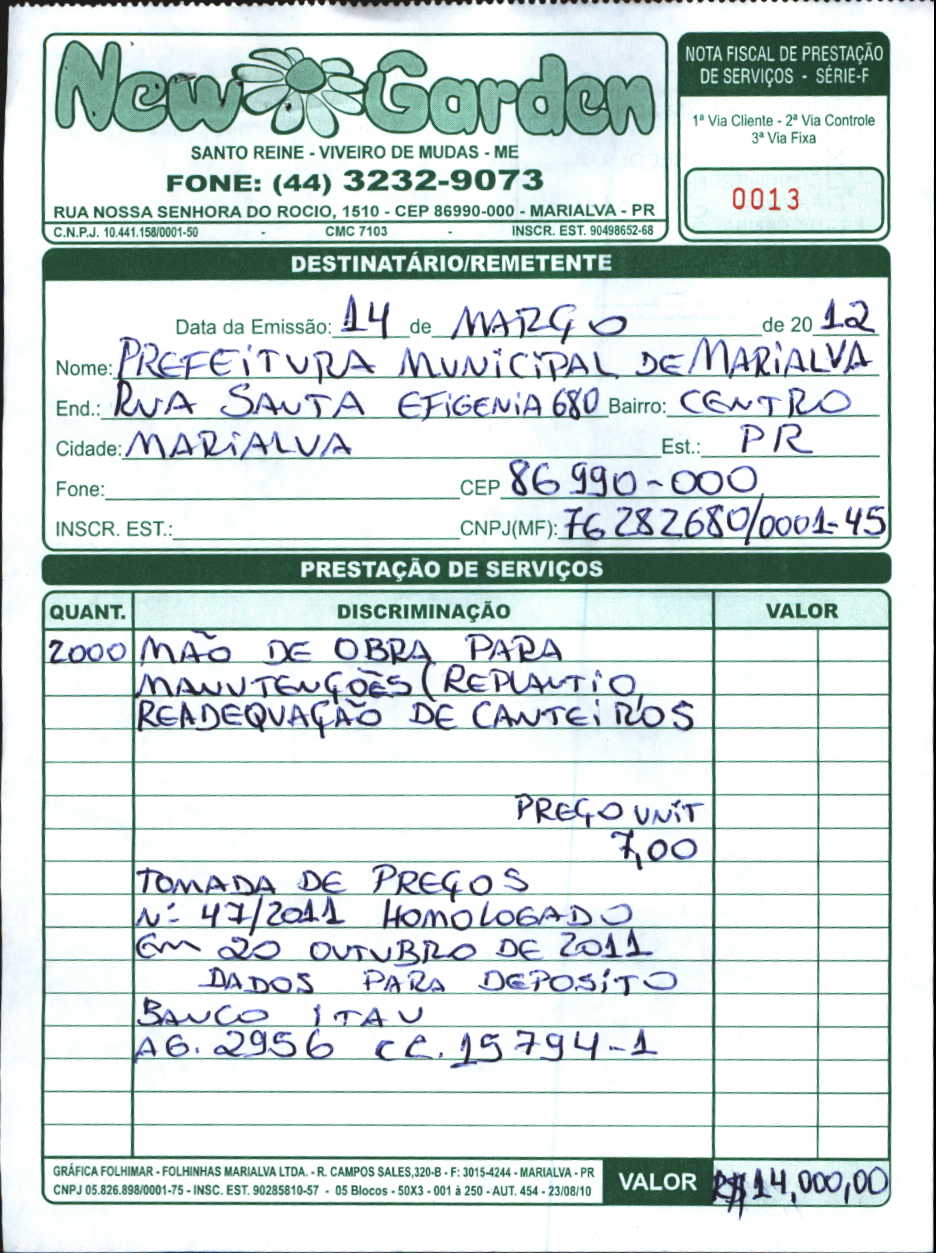 New Garden
SANTO REINE - VIVEIRO DE MUDAS - ME
FONE: (44) 3232-9073
RUA NOSSA SENHORA DO ROCIO, 1510 - CEP 86990-000 - MARIALVA - PR
C.N.P.J. 10.441.158/0001-50 - CMC 7103 - INSCR. EST. 90498652-68
NOTA FISCAL DE PRESTAÇÃO
DE SERVIÇOS - SÉRIE-F
1ª Via Cliente - 2ª Via Controle
3ª Via Fixa
0013
DESTINATÁRIO/REMETENTE
Data da Emissão: 14 de MARÇO de 2012
Nome: PREFEITURA MUNICIPAL DE MARIALVA
End.: RUA SANTA EFIGENIA 680 Bairro: CENTRO
Cidade: MARIALVA Est.: PR
Fone: CEP 86990-000
INSCR. EST.: CNPJ(MF): 76282680/0001-45
PRESTAÇÃO DE SERVIÇOS
QUANT. DISCRIMINAÇÃO VALOR
2000 MÃO DE OBRA PARA
MANUTENÇÕES (REPLANTIO,
READEQUAÇÃO DE CANTEIROS
PREÇO UNIT
7,00
TOMADA DE PREÇOS
Nº 47/2011 HOMOLOGADO
Em 20 OUTUBRO DE 2011
DADOS PARA DEPOSITO
BANCO ITAU
AG. 2956 CC. 15794-1
GRÁFICA FOLHIMAR - FOLHINHAS MARIALVA LTDA. - R. CAMPOS SALES,320-B - F: 3015-4244 - MARIALVA - PR
CNPJ 05.826.898/0001-75 - INSC. EST. 90285810-57 - 05 Blocos - 50X3 - 001 à 250 - AUT. 454 - 23/08/10
VALOR R$ 14,000,00